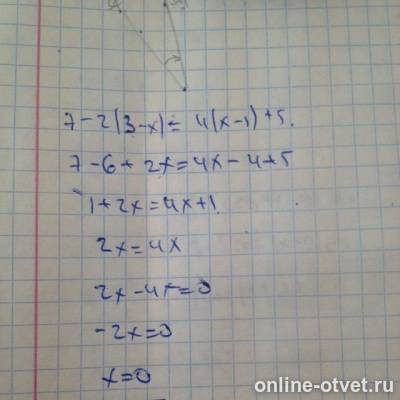 7-2(3-x)=4(x-1)+5.
7-6+2x=4x-4+5
1+2x=4x+1
2x=4x
2x-4x=0
-2x=0
x=0
online-otvet.ru